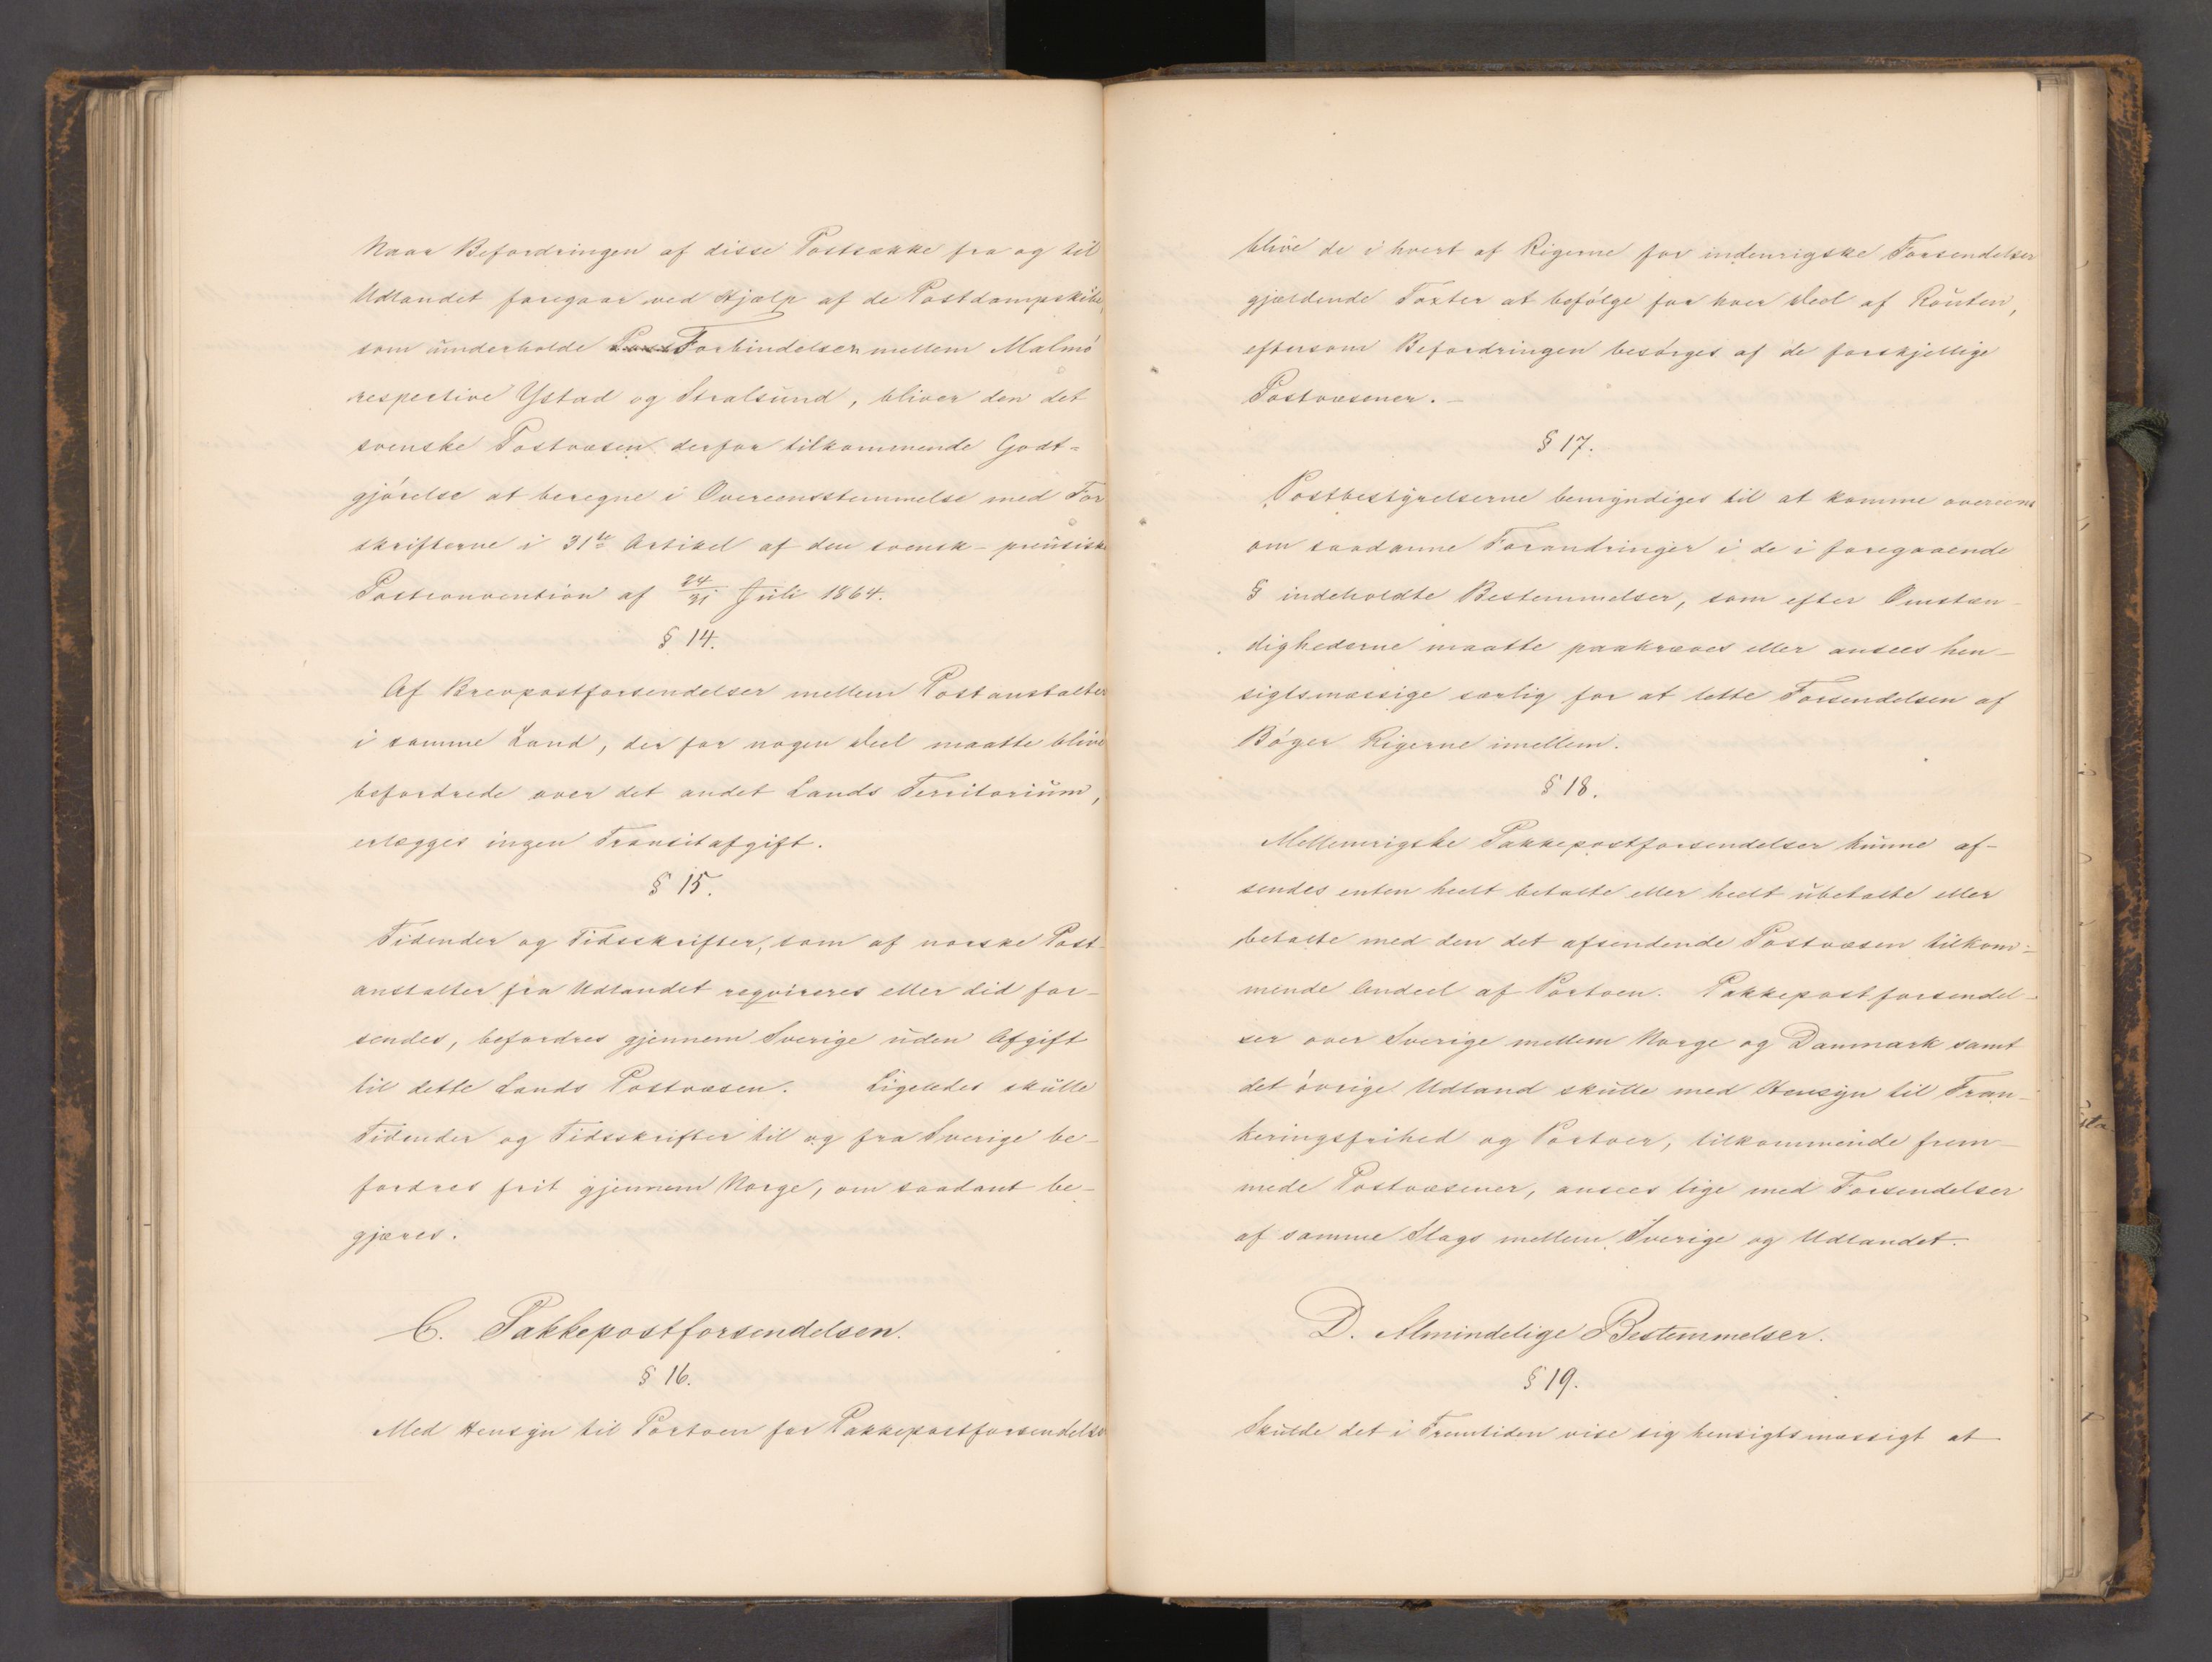 Naar Befordringen af disse Postsække fra og til
Udlandet foregaar ved Hjælp af de Postdampskibe,
som underholde Forbindelser mellem Malmö
respective Ystad og Stralsund, bliver den det
svenske Postvæsen derfor tilkommende Godt-
gjörelse at beregne i Overeensstemmelse med For
skrifterne i 31te Artikel af den svensk-preusiske
Postconvention af 24/31 Juli 1864.
§ 14.
Af Brevpostforsendelser mellem Postanstalter
i samme Land, der for nogen Deel maatte blive
befordrede over det andet Lands Territorium,
erlægges ingen Transitafgift.
§ 15.
Tidender og Tidsskrifter, som af norske Post-
anstalter fra Udlandet reqvireres eller did for-
sendes, befordres gjennem Sverige uden Afgift
til dette Lands Postvæsen. Ligeledes skulle
Tidender og Tidsskrifter til og fra Sverige be-
fordres frit gjennem Norge, om saadant be-
gjæres.
C. Pakkepostforsendelsen.
§ 16.
Med Hensyn til Portoen for Pakkepostforsendelser
blive de i hvert af Rigerne for indenrigske Forsendelser
gjældende Taxter at befölge for hver Deel af Routen,
eftersom Befordringen besörges af de forskjellige
Postvæsener.-
§ 17.
Postbestyrelserne bemyndiges til at komme overeens
om saadanne Forandringer i de i foregaaende
§ indeholdte Bestemmelser, som efter Omstæn-
dighederne maatte paakræves eller ansees hen-
sigtsmæssige særlig for at lette Forsendelsen af
Böger Rigerne imellem.
§ 18.
Mellemrigske Pakkepostforsendelser kunne af-
sendes enten heelt betalte eller heelt ubetalte eller
betalte med den det afsendende Postvæsen tilkom-
mende Andeel af Portoen. Pakkepostforsendel-
ser over Sverige mellem Norge og Danmark samt
det övrige Udland skulle med Hensyn til Fran-
keringsfrihed og Portoer, tilkommende frem-
mede Postvæsener, ansees lige med Forsendelser
af samme Slags mellem Sverige og Udlandet.
D. Almindelige Bestemmelser.
§ 19.
Skulde det i Fremtiden vise sig hensigtsmæssigt at